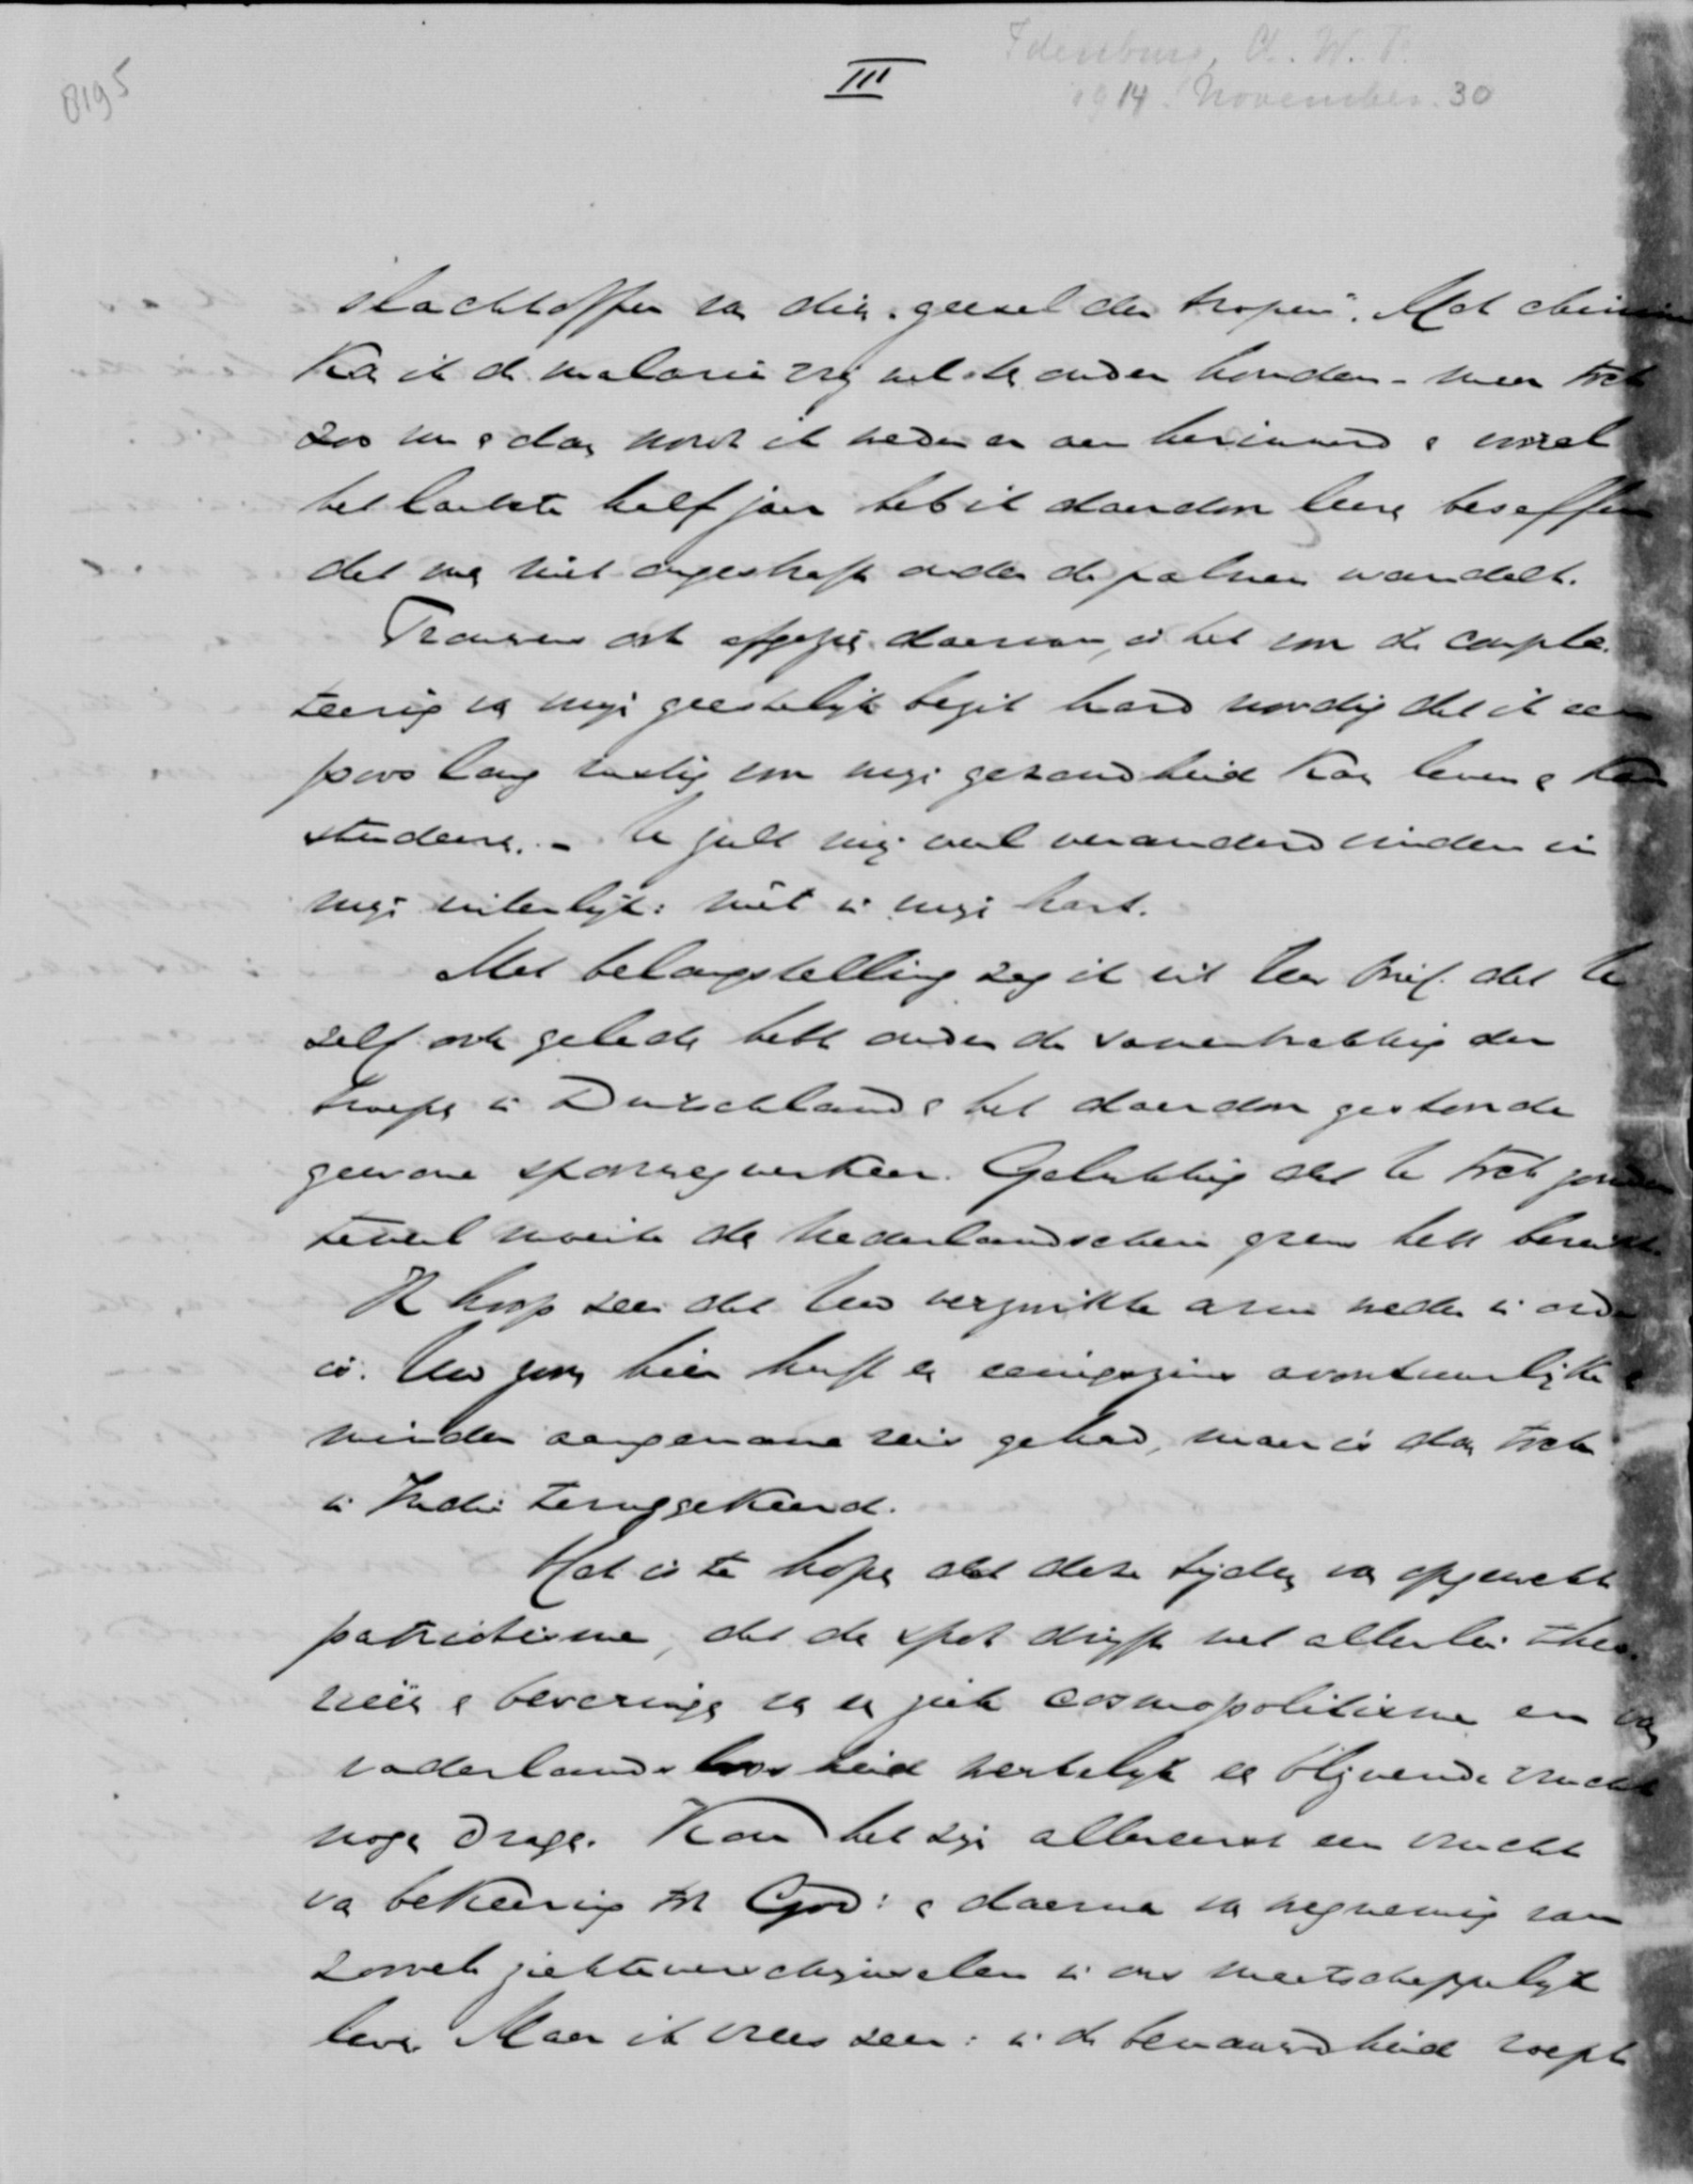 8195
III
Idenburg, A. W. F.
1914. November. 30
slachtoffer van dien "geesel der tropen". Met chinine
kan ik de malaria vrij wel ten onder houden - maar toch
zoo nu en dan word ik weder er aan herinnerd en vooral
het laatste half jaar heb ik daardoor leeren beseffen
dat men niet ongestraft onder de palmen wandelt.
Trouwens ook afgezien daarvan, is het voor de comple-
teering van mijn geestelijk bezit hard noodig dat ik een
poos lang rustig voor mijn gezondheid kan leven en kan
studeeren. - U zult mij veel veranderd vinden in
mijn uiterlijk: niet in mijn hart.
Met belangstelling zag ik uit Uw brief dat U
zelf ook geleden hebt onder de samentrekking der
troepen in Duitschland en het daardoor gestoorde
gewone spoorwegverkeer. Gelukkig dat U toch zonder
teveel moeite de Nederlandschen grens hebt bereikt.
Ik hoop zeer dat Uw verzwikte arm weder in orde
is. Uw zoon hier heeft een eenigszins avontuurlijke en
minder aangename reis gehad, maar is dan toch
in Indië teruggekeerd.
Het is te hopen dat deze tijden van opgewekt
patriotisme, dat de spot drijft met allerlei theo-
rieën en beweringen van een ziek cosmopolitisme en van
vaderlandsloosheid werkelijk een blijvende vrucht
mogen dragen. Kon het zijn allereerst een vrucht
van bekeering tot God: en daarna van wegneming van
zooveel ziekteverschijnselen in ons maatschappelijk
leven. Maar ik vrees zeer: in de benauwdheid roept